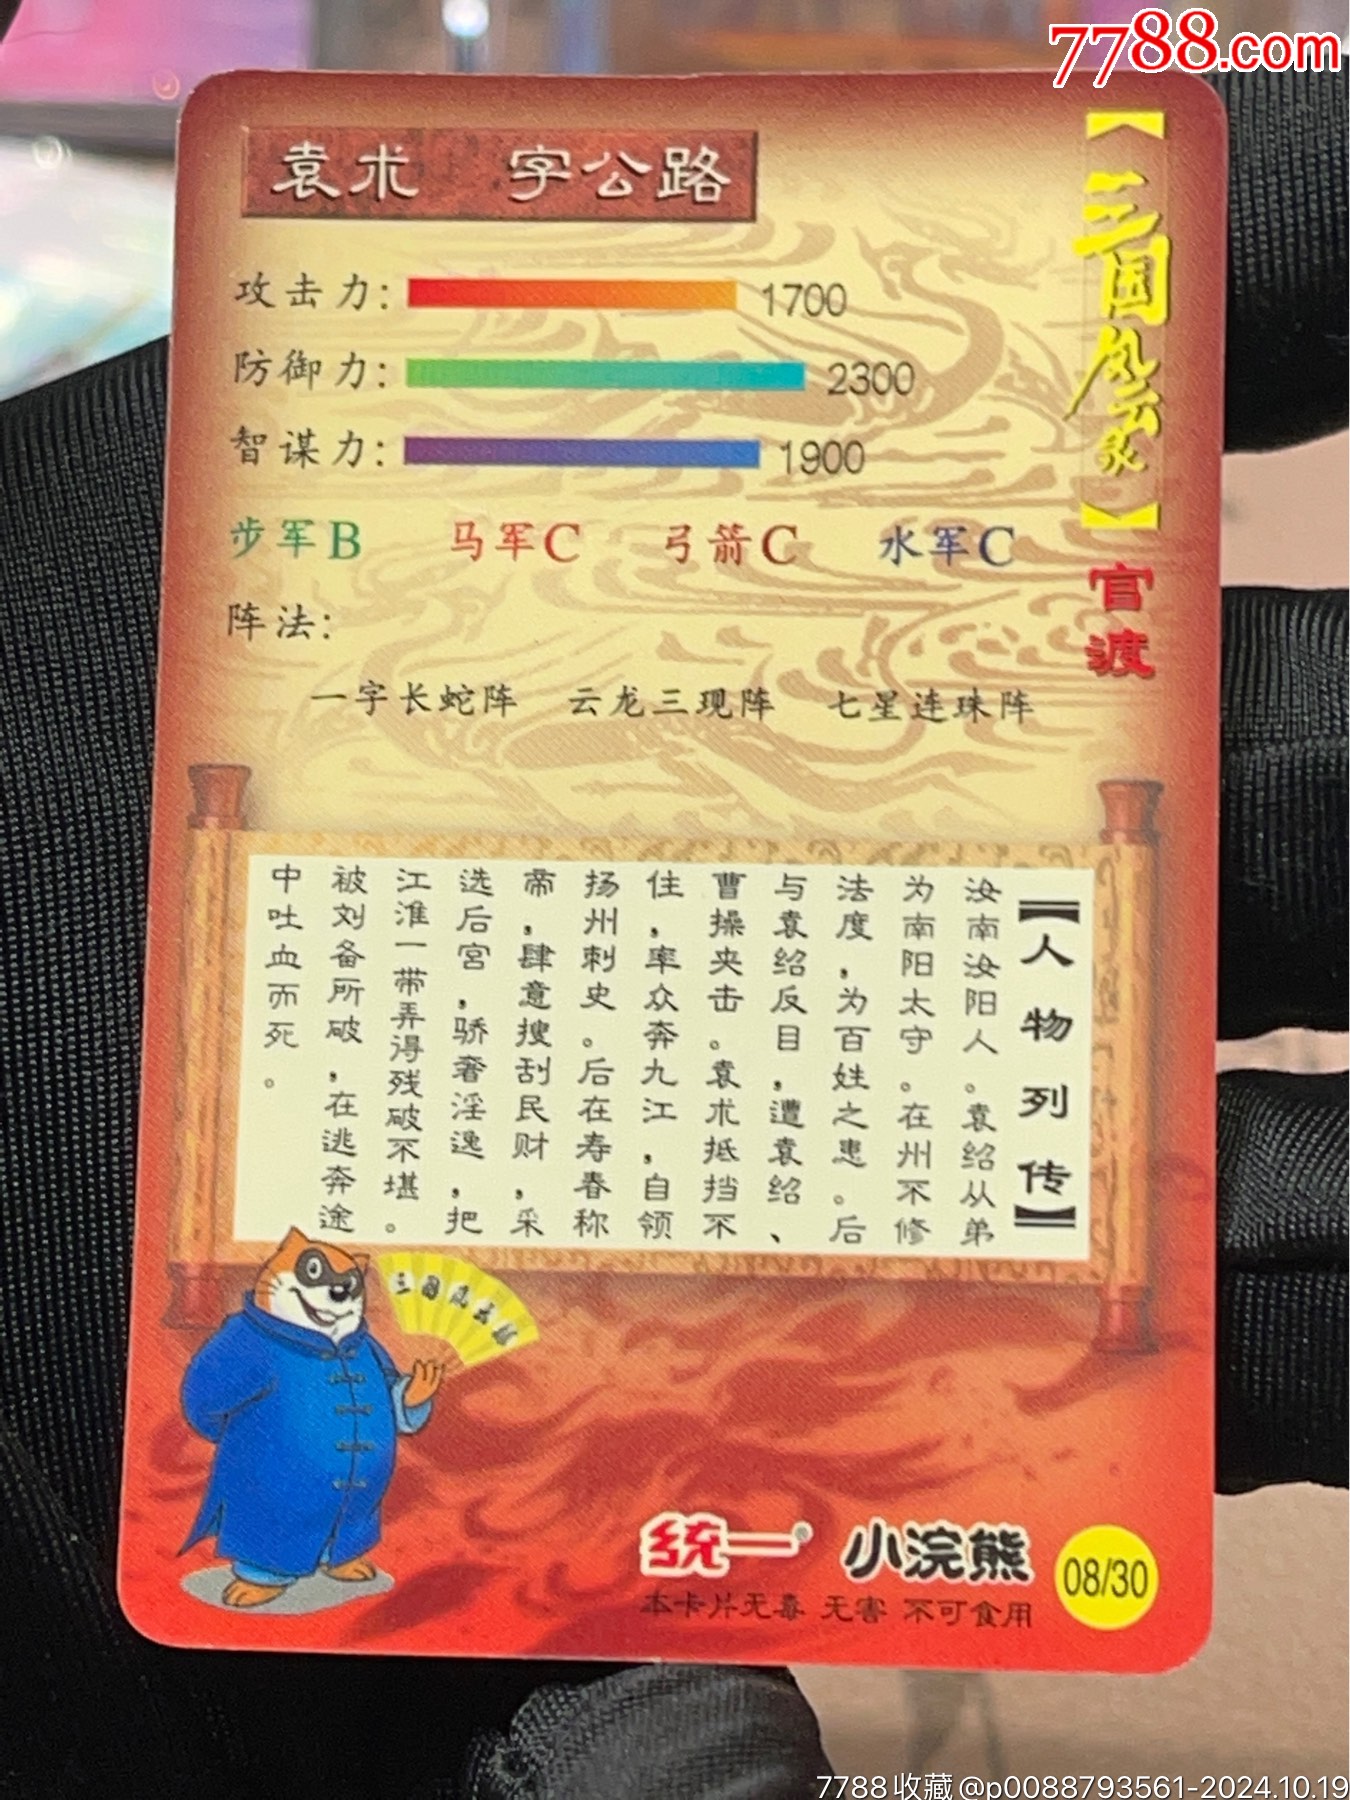 7788.com
袁术 字公路
【三国风云录】
官渡
攻击力: 1700
防御力: 2300
智谋力: 1900
步军B 马军C 弓箭C 水军C
阵法:
一字长蛇阵 云龙三现阵 七星连珠阵
【人物列传】
汝南汝阳人。袁绍从弟
为南阳太守。在州不修
法度，为百姓之患。后
与袁绍反目，遭袁绍、
曹操夹击。袁术抵挡不
住，率众奔九江，自领
扬州刺史。后在寿春称
帝，肆意搜刮民财，采
选后宫，骄奢淫逸，把
江淮一带弄得残破不堪。
被刘备所破，在逃奔途
中吐血而死。
三国风云录
统一® 小浣熊
08/30
本卡片无毒 无害 不可食用
7788收藏@p0088793561-2024.10.19